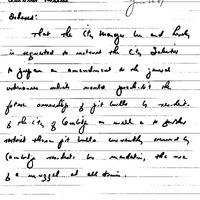 Ordered:
That the City Manager be and hereby
is requested to instruct the City Solicitor
to prepare an amendment to the general
ordinances which would prohibit the
future ownership of pit bulls by residents
of the City of Cambridge as well as to further
restrict those pit bulls currently owned by
Cambridge residents by mandating the use
of a muzzel at all times.